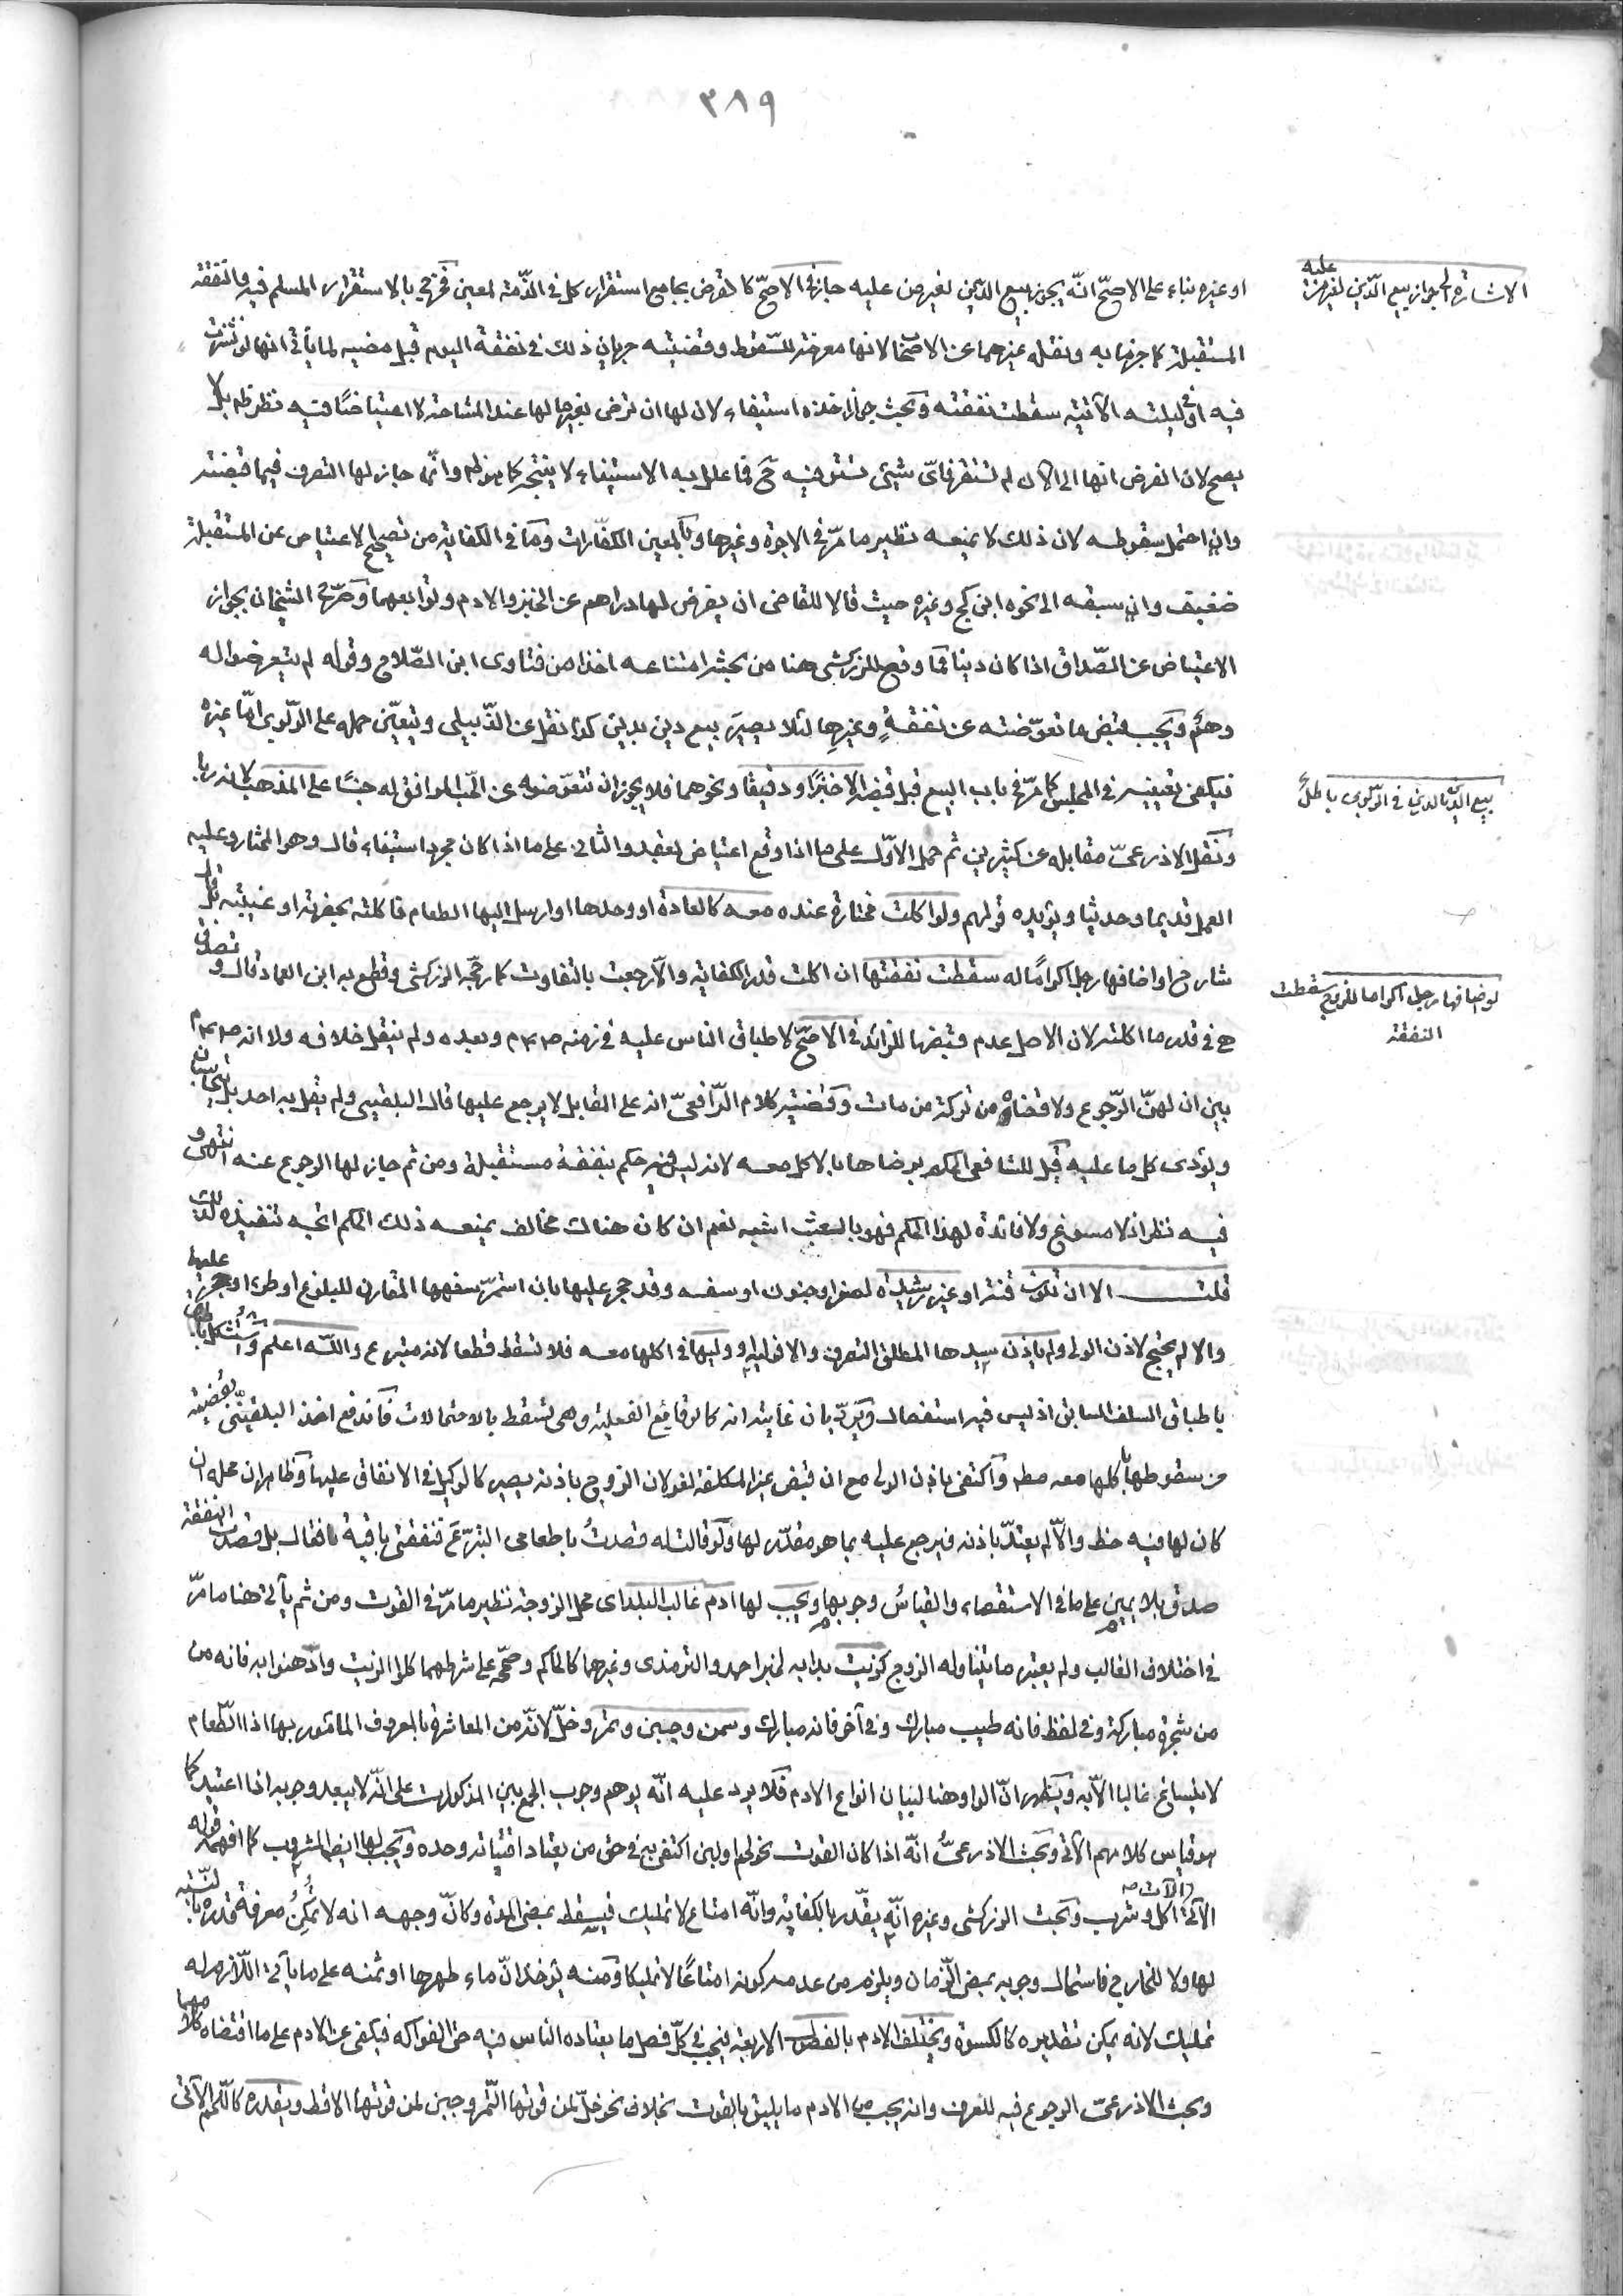 ٣٨٩
او غيره بناء على الاصحّ انّه يجوز بيع الدّين لغير من عليه جاز في الاصحّ كالقرض بجامع استقرار كل في الذّمة لمعين فخرج بالاستقرار المسلم فيه والنفقة
الاشارة الى جواز بيع الدّين لغير من عليه
المستقبلة كما جزما به ونقله غيرهما عن الاصحاب لانها معرضة للسّقوط وقضيته جريان ذلك في نفقة اليوم قبل مضيه لما يأتي انها لو نشزت
فيه او في ليلته الآتية سقطت نفقته وبحث جواز اخذه استيفاء لان لها ان ترضى بغير ما لها عند المشاحة لا اعتياضًا فيه نظر ظ بل لا
يصح لان الفرض انها الى الآن لم تستقر فاىّ شيئ تستوفيه ح فما علل به الاستيفاء لا ينتج كما هو ظ وانّما جاز لها التصرف فيما قبضته
وان احتمل سقوطه لان ذلك لا يمنعه نظير ما مرّ في الاجرة وغيرها وبالمعين الكفّارات وما في الكفاية من تصحيح الاعتياض عن المستقبلة
ضعيف وان سبقه الى نحوه ابن كج وغيره حيث قالا للقاضى ان يفرض لها دراهم عن الخبز والادم وتوابعهما وصرّح الشيخان بجواز
الاعتياض عن الصّداق اذا كان دينا فما وقع للزركشى هنا من بحثه امتناعه اخذا من فتاوى ابن الصّلاح وقوله لم يتعرضوا له
وهمٌ ويجب قبض ما تعوّضته عن نفقةٍ وغيرِها لئلا يصير بيع دين بدين كذا نقل عن الدّبيلى ويتعيّن حمله على الرّبوى امّا غيره
فيكفى تعيينه في المجلس كما مرّ في باب البيع قبل قبضه الا خبزًا او دقيقا ونحوهما فلا يجوز ان تتعوّضه عن الحبّ الموافق له جنسًا على المذهب لانه ربا
بيع الدّين بالدين في الرّبوى باطلٌ
ونقل الاذرعىّ مقابله عن كثيرين ثم حمل الاوّل على ما اذا وقع اعتياض بعقد والثانى على ما اذا كان مجرد استيفاء قال وهو المختار وعليه
العمل قديما وحديثا ويؤيده قولهم ولو اكلت مختارة عنده معه كالعادة او وحدها او ارسل اليها الطعام فاكلته بحضرته او غيبته قال
شارح او اضافها رجل اكرامًا له سقطت نفقتها ان اكلت قدر الكفاية والّا رجعت بالتفاوت كما رجّحه الزركشى وقطع به ابن العماد قال وتصدق
لو ضافها رجل اكراما للزوج سقطت
النفقة
هى في قدر ما اكلته لان الاصل عدم قبضها للزائد في الاصحّ لاطباق الناس عليه في زمنه صلعم وبعده ولم ينقل خلافه ولا انه صلعم
بين ان لهنّ الرّجوع ولا قضاه من تركة من مات وقضية كلام الرّافعىّ انه على المقابل لا يرجع عليها قال البلقينى ولم يقل به احد بل يتحاسبان
ويؤدى كل ما عليه قيل للشافعى الحكم برضاها بالاكل معه لانه ليس فيه حكم بنفقة مستقبلة ومن ثم جاز لها الرجوع عنه انتهى و
فيه نظر اذ لا مسوغ ولا فائدة لهذا الحكم فهو بالعبث اشبه نعم ان كان هناك مخالف يمنعه ذلك الحكم اتجه تنفيذه لذلك
قلت الا ان تكون قنة او غير رشيدة لصغر او جنون او سفه وقد حجر عليها بان استمرّ سفهها المقارن للبلوغ او طرأ وحجر عليها
والا لم يحتج لاذن الولى ولم ياذن سيدها المطلق التصرف والا فوليه او وليها في اكلها معه فلا تسقط قطعا لانه متبرع واللّه اعلم واستشكل
باطباق السلف السابق اذ ليس فيه استفصال ويردّ بان غايته انه كالوقائع الفعلية وهى تسقط بالاحتمالات فاندفع اخذ البلقينّى بقضيته
من سقوطها باكلها معه مطـ واكتفى باذن الولى مع ان قبض غير المكلفة لغو لان الزوج باذنه يصير كالوكيل في الانفاق عليها وظاهر ان محله ان
كان لها فيه حظ والّا لم يعتدّ باذنه فيرجع عليه بما هو مقدّر لها ولو قالت له قصدتُ باطعامى التبرّع فنفقتى باقية فقال بل قصدت النفقة
صدق بلا يمين على ما في الاستقصاء والقياسُ وجوبها ويجب لها ادم غالب البلد اى محل الزوجة نظير ما مرّ في القوت ومن ثم يأتى هنا ما مرّ
في اختلاف الغالب ولم يعتبر ما يتناوله الزوج كزيت بدا به لخبر احمد والترمذى وغيرهما كالحاكم وصححه على شرطهما كلوا الزيت وادّهنوا به فانه من
من شجرة مباركة وفي لفظ فانه طيب مبارك وفى آخر فانه مبارك وسمن وجبن وتمر وخلّ لانّه من المعاشرة بالمعروف المامور بها اذ الطّعام
لا ينساغ غالبا الّا به ويظهر انّ الواو هنا لبيان انواع الادم فلا يرد عليه انّه يوهم وجوب الجمع بين المذكورات على انّه لا يبعد وجوبه اذا اعتيد كما
هو قياس كلامهم الآتى وبحث الاذرعىُّ انّه اذا كان القوت نحو لحم او لبن اكتفى به في حق من يعتاد اقتياته وحده ويجب لها ايضا المشروب كما افهمه قوله
الآتى آلات اكل وشرب وبحث الزركشى وغيره انّه يقدّر بالكفاية وانّه امتاع لا تمليك فيسقط بمضى المدة وكانّ وجهه انه لا تُمكِنُ معرفة قدره بالنسبة
لها ولا للخارج فاستحال وجوبه بمضى الزّمان ويلزم من عدمه كونه امتاعًا لا تمليكا ومنه يؤخذ انّ ماء طهرها او ثمنه على ما يأتى اللّازم له
تمليك لانه يمكن تقديره كالكسوة ويختلف الادم بالفصول الاربعة فيجب في كلّ فصل ما يعتاده الناس فيه حتى الفواكه فيكفى عن الادم على ما اقتضاه كلامهما
وبحث الاذرعىّ الرجوع فيه للعرف وانه يجب من الادم ما يليق بالقوت بخلاف نحو خلّ لمن قوتها التّمر وجبن لمن قوتها الاقط ويقدره كاللّحم الآتى